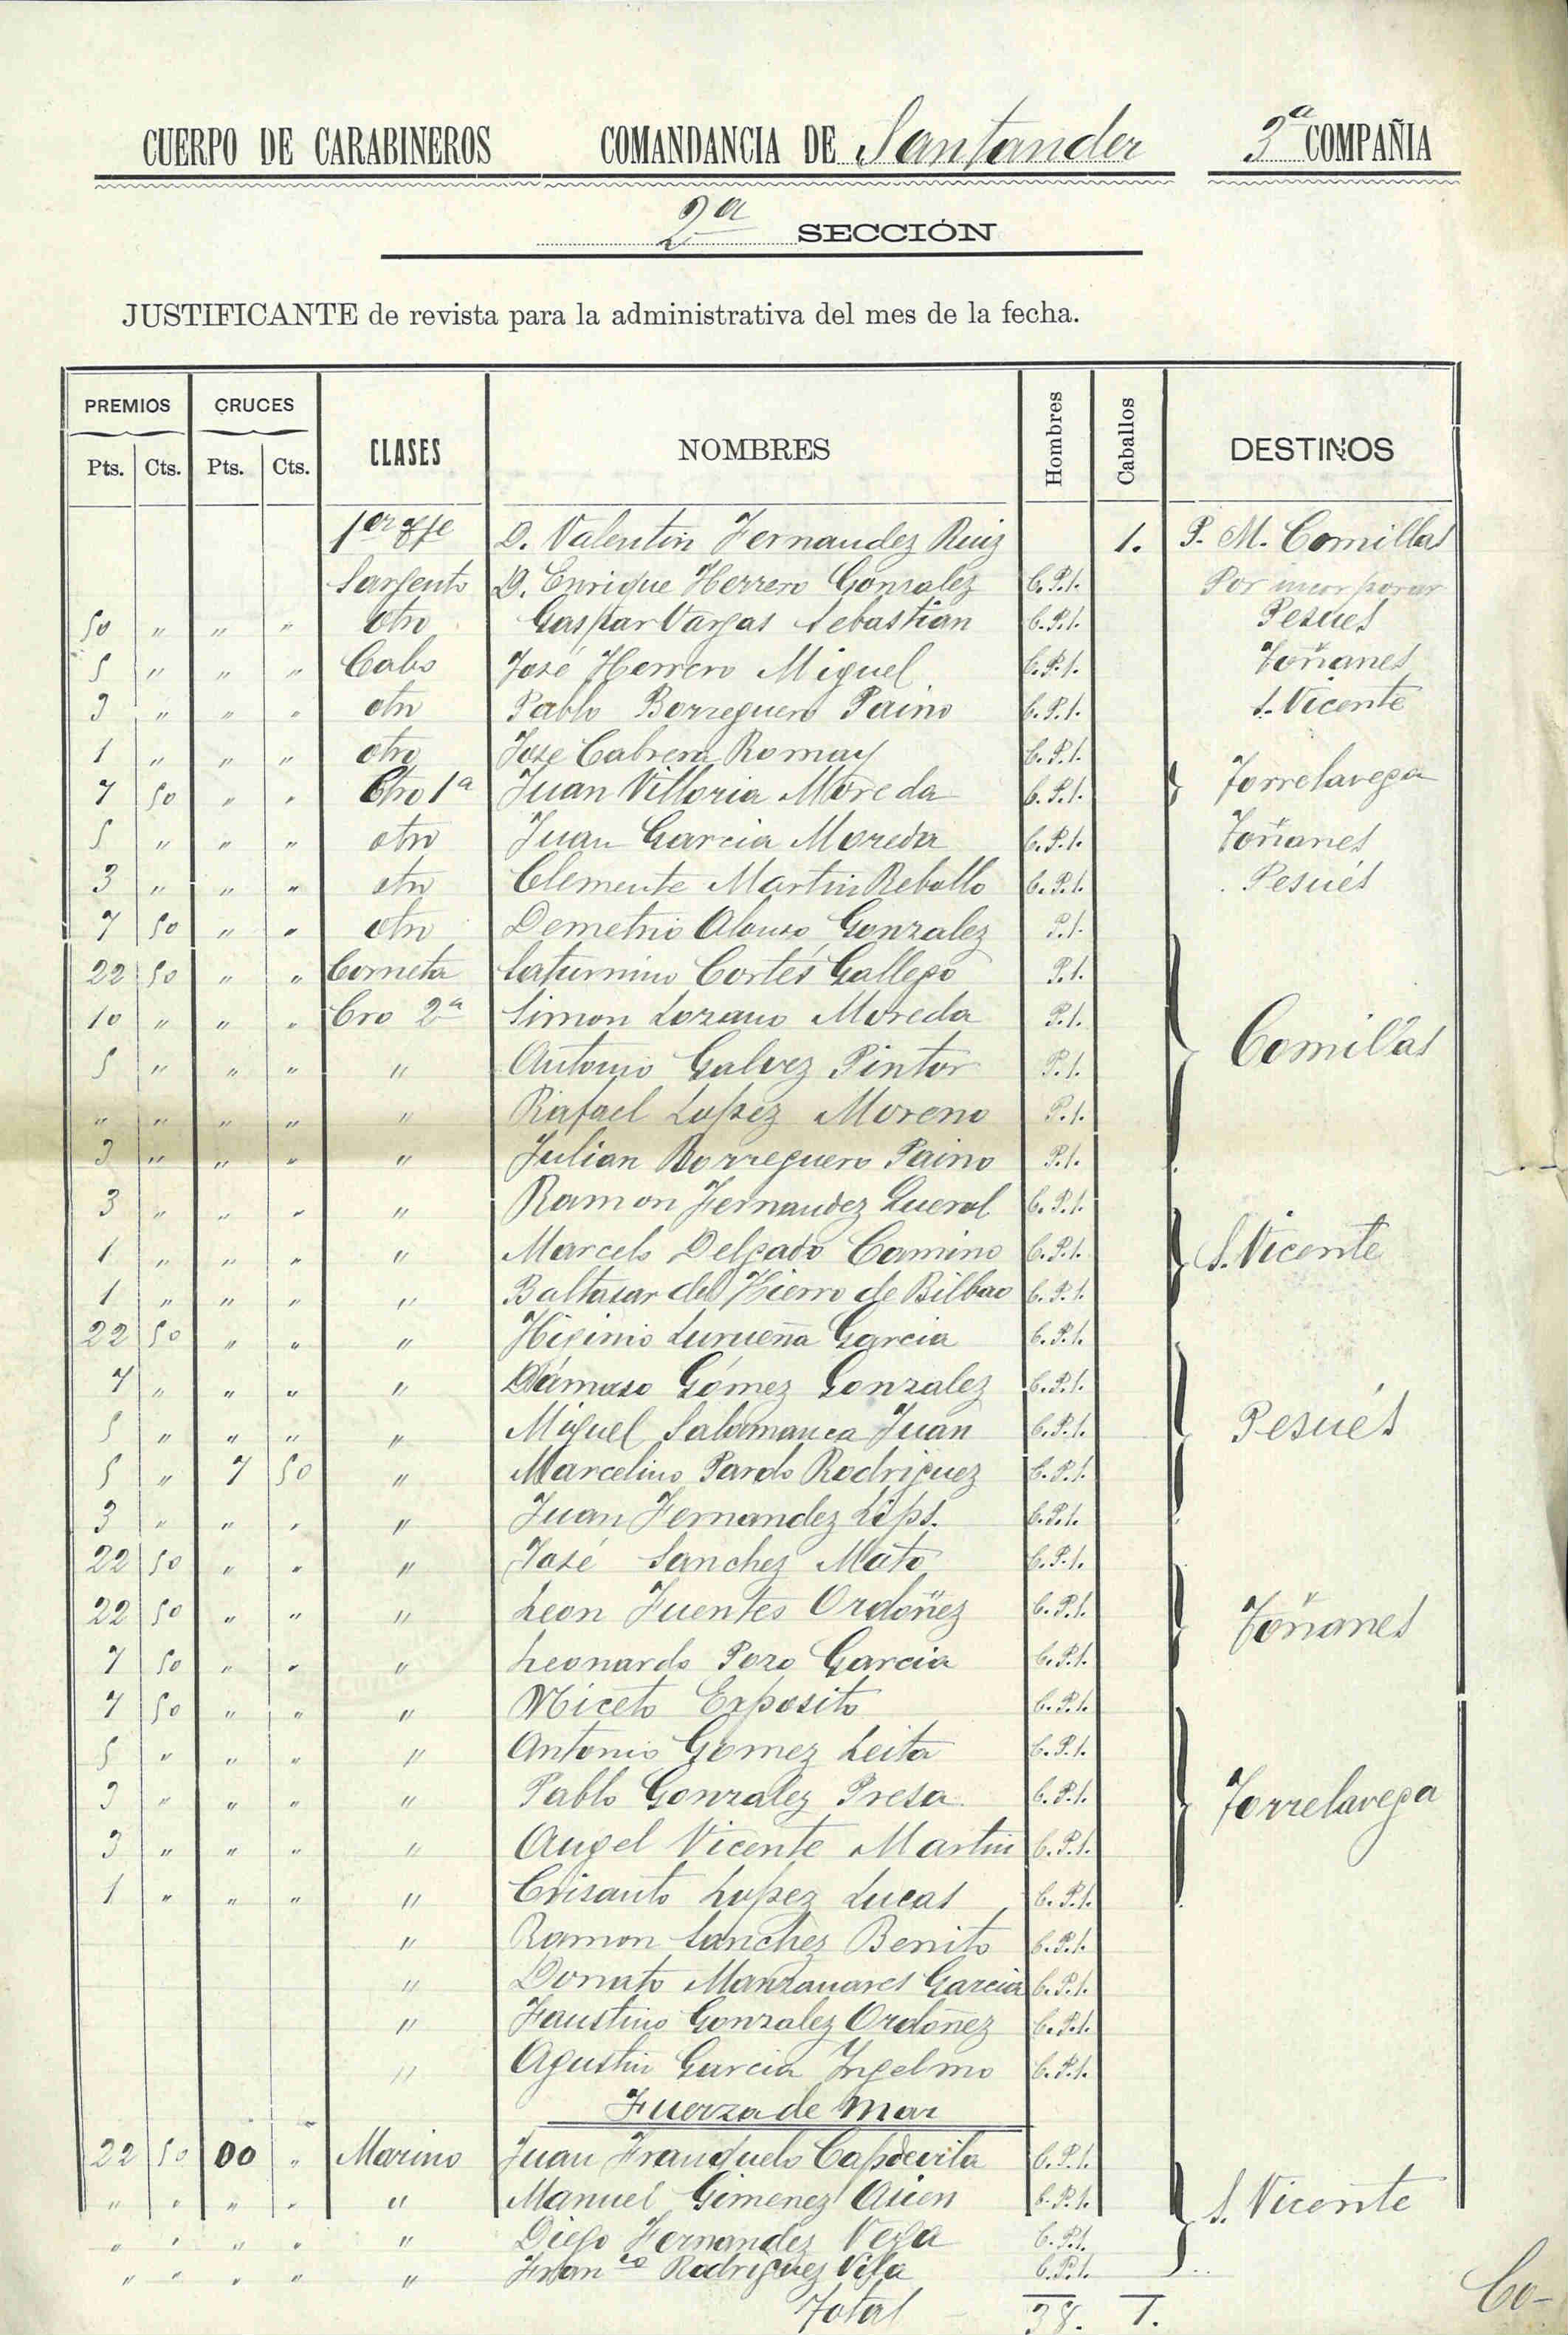 CUERPO DE CARABINEROS COMANDANCIA DE Santander 3ª COMPAÑIA
2ª SECCIÓN
JUSTIFICANTE de revista para la administrativa del mes de la fecha.
PREMIOS CRUCES CLASES NOMBRES Hombres Caballos DESTINOS
Pts. Cts. Pts. Cts.
1er D. Valentin Fernandez Ruiz 1. P. M. Comillas
Sargento D. Enrique Herrero Gonzalez C.P.1. Por incorporar
50 " " " Otro Gaspar Vargas Sebastian C.P.1. Pesues
5 " " " Cabo José Herrero Miguel C.P.1. Toñanes
3 " " " otro Pablo Borreguero Paino C.P.1. S. Vicente
1 " " " otro Jose Cabrera Romay C.P.1.
7 50 " " Otro 1ª Juan Villoria Moreda C.P.1. } Torrelavega
5 " " " otro Juan Garcia Moreda C.P.1. Toñanes
3 " " " otro Clemente Martin Rebollo C.P.1. Pesués
7 50 " " otro Demetrio Alonso Gonzalez P.1.
22 50 " " Corneta Saturnino Cortés Gallego P.1.
10 " " " Cro 2ª Simon Lozano Moreda P.1.
5 " " " " Antonio Galvez Pintor P.1. } Comillas
" " " " " Rafael Lopez Moreno P.1.
3 " " " " Julian Borreguero Paino P.1.
3 " " " " Ramon Fernandez Queral C.P.1.
1 " " " " Marcelo Delgado Camino C.P.1. } S. Vicente
1 " " " " Baltasar del Hierro de Bilbao C.P.1.
22 50 " " " Higinio Lurueña Garcia C.P.1.
7 " " " " Dámaso Gómez Gonzalez C.P.1.
5 " " " " Miguel Salamanca Juan C.P.1. } Pesués
5 " 7 50 " Marcelino Pardo Rodriguez C.P.1.
3 " " " " Juan Fernandez C.P.1.
22 50 " " " José Sanchez Mato C.P.1.
22 50 " " " Leon Fuentes Ordoñez C.P.1. } Toñanes
7 50 " " " Leonardo Pozo Garcia C.P.1.
7 50 " " " Niceto Exposito C.P.1.
5 " " " " Antonio Gomez Leita C.P.1.
3 " " " " Pablo Gonzalez Presa C.P.1. } Torrelavega
3 " " " " Angel Vicente Martin C.P.1.
1 " " " " Crisanto Lopez Lucas C.P.1.
" Ramon Sanchez Benito C.P.1.
" Donato Manzanares Garcia C.P.1.
" Faustino Gonzalez Ordoñez C.P.1.
" Agustin Garcia Ingelmo C.P.1.
Fuerza de Mar
22 50 00 " Marino Juan Franquelo Capdevila C.P.1.
" " " " " Manuel Gimenez C.P.1. } S. Vicente
" " " " " Diego Fernandez Vega C.P.1.
" " " " " Franco Rodriguez Vila C.P.1.
Total 38. 1.
Co-